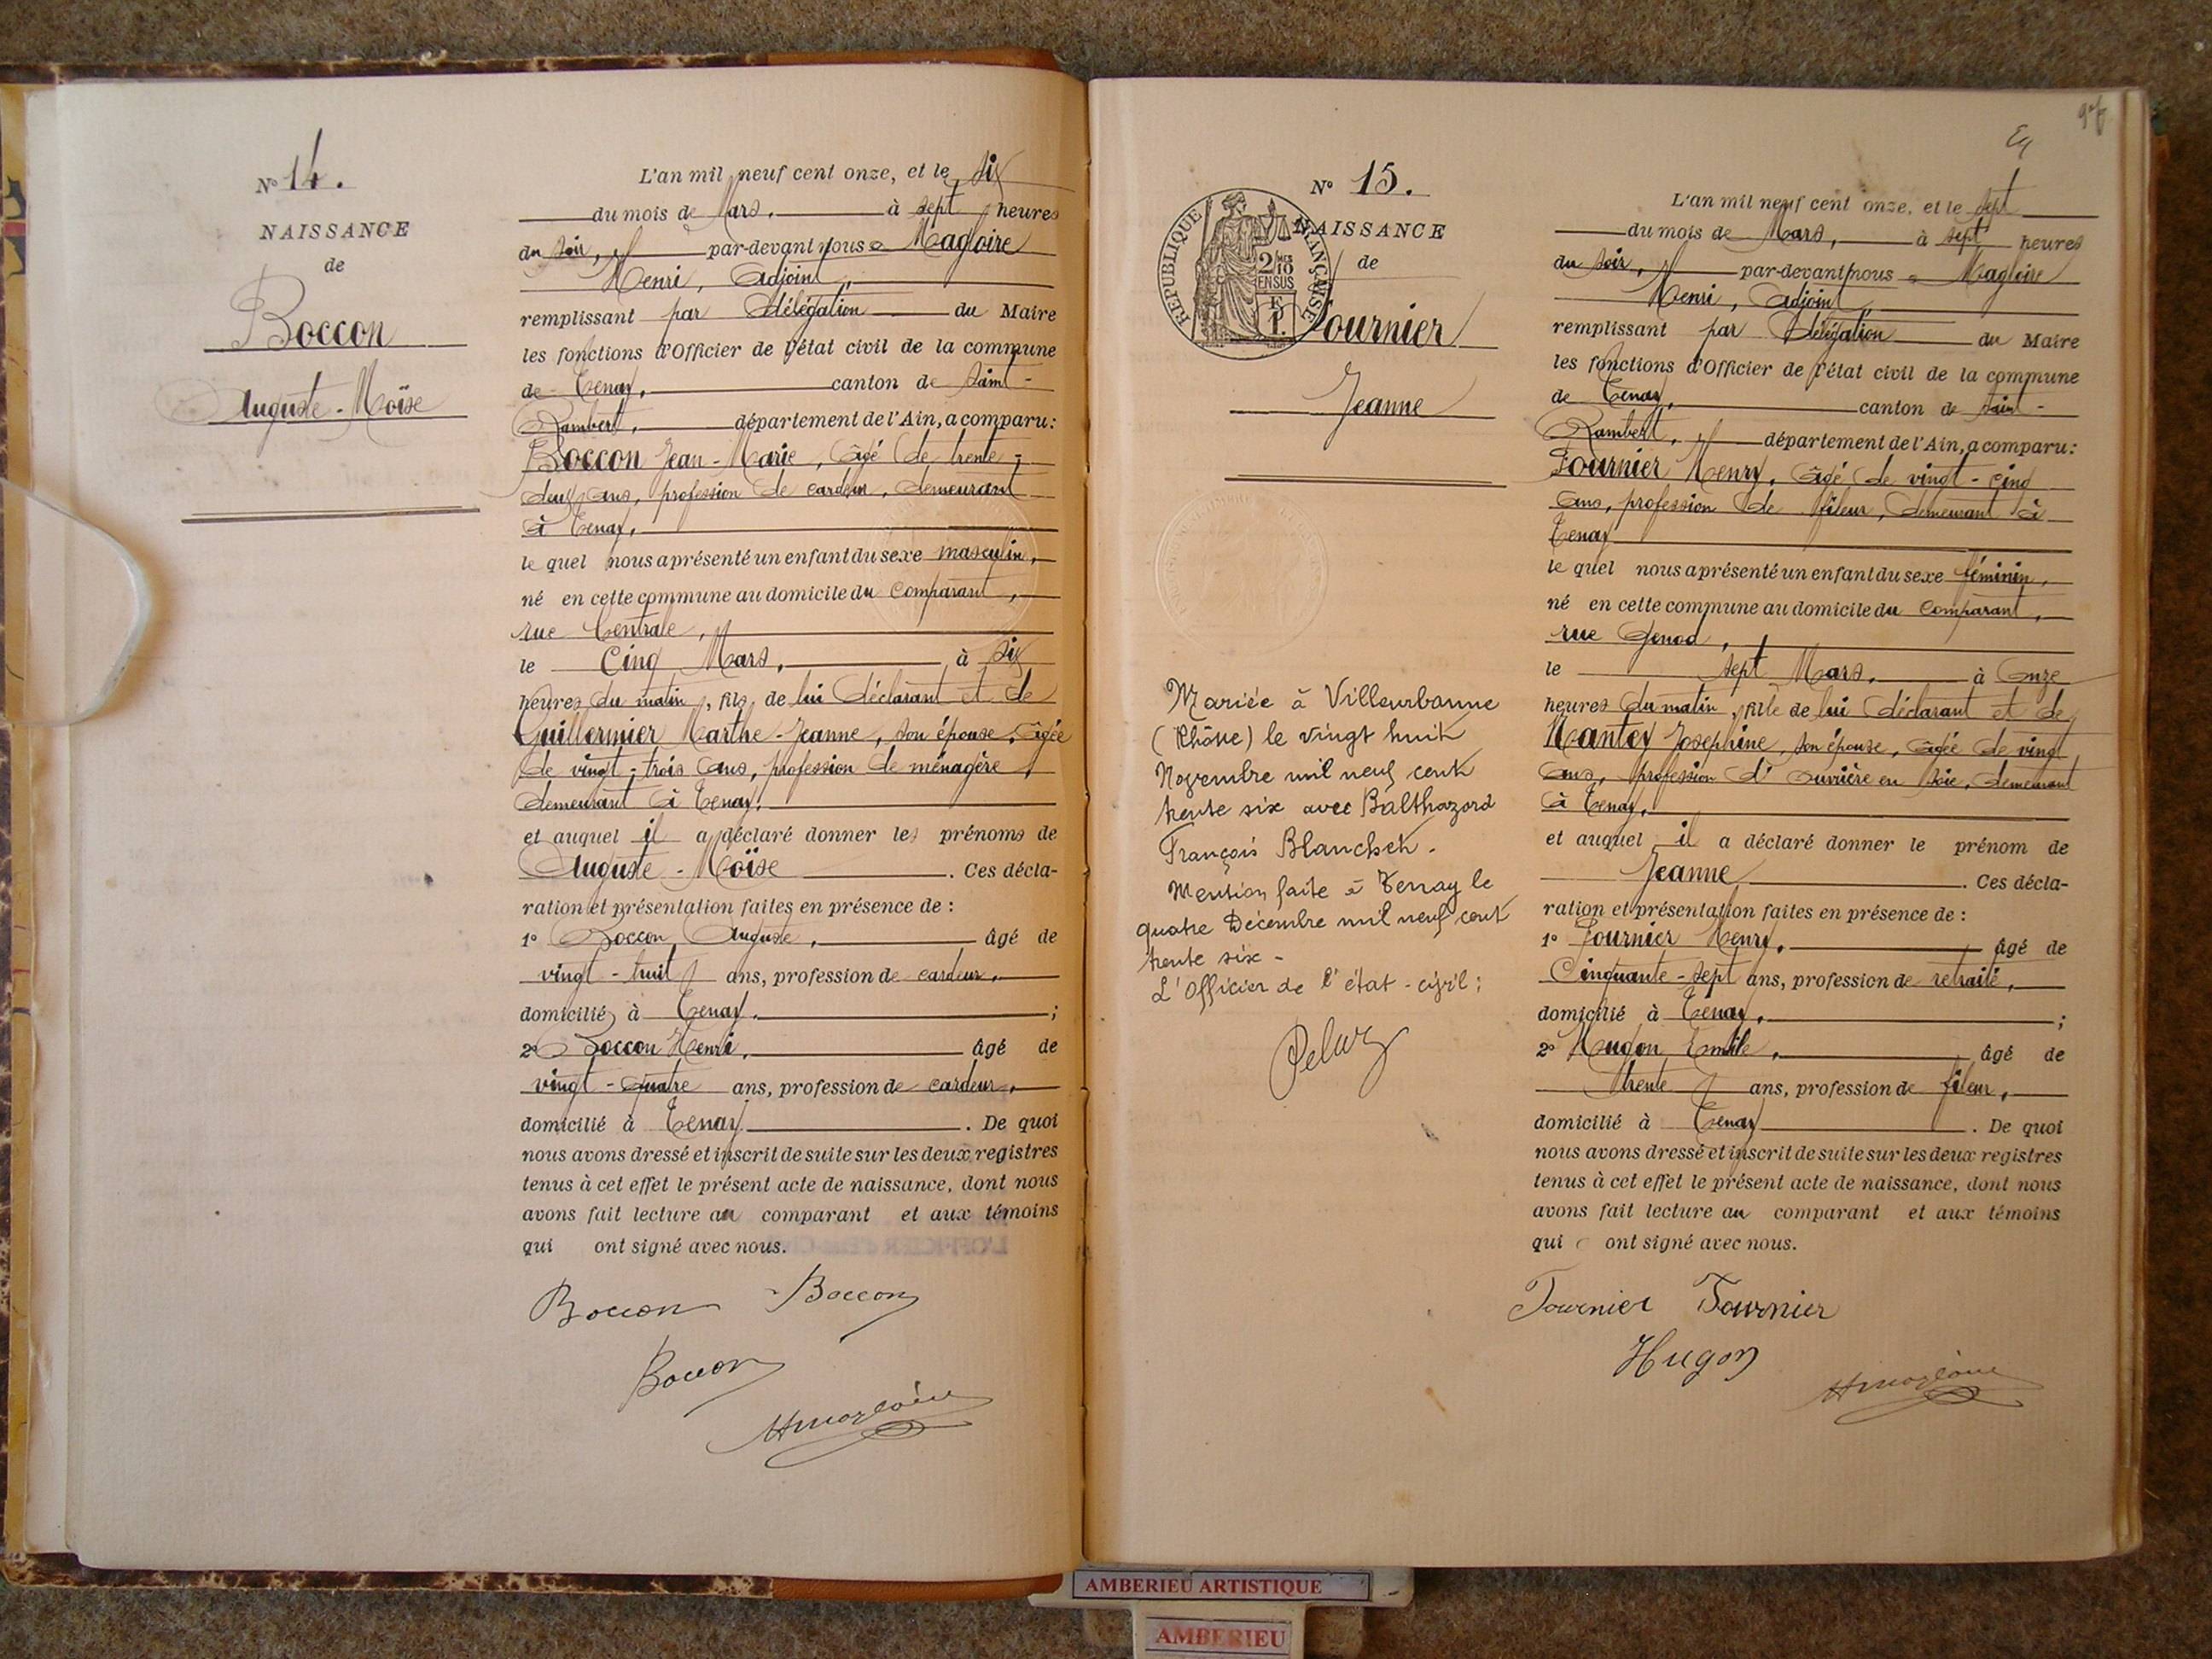 N° 14.
NAISSANCE
de
Boccon
Auguste-Moïse
L'an mil neuf cent onze, et le six
du mois de Mars, à sept heures
du soir, par-devant nous Magloire
Henri, Adjoint,
remplissant par délégation du Maire
les fonctions d'Officier de l'état civil de la commune
de Tenay, canton de Saint-
Rambert, département de l'Ain, a comparu:
Boccon Jean-Marie, âgé de trente-
deux ans, profession de cardeur, demeurant
à Tenay,
le quel nous a présenté un enfant du sexe masculin,
né en cette commune au domicile du comparant,
rue Centrale,
le Cinq Mars, à six
heures du matin, fils de lui déclarant et de
Guillermier Marthe-Jeanne, son épouse, âgée
de vingt-trois ans, profession de ménagère,
demeurant à Tenay,
et auquel il a déclaré donner les prénoms de
Auguste-Moïse. Ces décla-
ration et présentation faites en présence de :
1° Boccon Auguste, âgé de
vingt-huit ans, profession de cardeur,
domicilié à Tenay, ;
2° Boccon Henri, âgé de
vingt-quatre ans, profession de cardeur,
domicilié à Tenay. De quoi
nous avons dressé et inscrit de suite sur les deux registres
tenus à cet effet le présent acte de naissance, dont nous
avons fait lecture au comparant et aux témoins
qui ont signé avec nous.
Boccon Boccon
Boccon
HMagloire
N° 15.
NAISSANCE
de
RÉPUBLIQUE FRANÇAISE
2/10 EN SUS
Fournier
Jeanne
Mariée à Villeurbanne
(Rhône) le vingt huit
Novembre mil neuf cent
trente six avec Balthazard
François Blanchet.
Mention faite à Tenay le
quatre Décembre mil neuf cent
trente six -
L'Officier de l'état-civil ;
L'an mil neuf cent onze, et le sept
du mois de Mars, à sept heures
du soir, par-devant nous Magloire
Henri, Adjoint,
remplissant par délégation du Maire
les fonctions d'Officier de l'état civil de la commune
de Tenay, canton de Saint-
Rambert, département de l'Ain, a comparu:
Fournier Henry, âgé de vingt-cinq
ans, profession de fileur, demeurant à
Tenay
le quel nous a présenté un enfant du sexe féminin,
né en cette commune au domicile du comparant,
rue Genod,
le sept Mars, à Onze
heures du matin, fille de lui déclarant et de
Mantey Josephine, son épouse, âgée de vingt
ans, profession d'ouvrière en soie, demeurant
à Tenay,
et auquel il a déclaré donner le prénom de
Jeanne. Ces décla-
ration et présentation faites en présence de :
1° Fournier Henry, âgé de
Cinquante-sept ans, profession de retraité,
domicilié à Tenay, ;
2° Hugon Emile, âgé de
trente ans, profession de fileur,
domicilié à Tenay. De quoi
nous avons dressé et inscrit de suite sur les deux registres
tenus à cet effet le présent acte de naissance, dont nous
avons fait lecture au comparant et aux témoins
qui ont signé avec nous.
Fournier Fournier
Hugon
HMagloire
AMBERIEU ARTISTIQUE
AMBERIEU